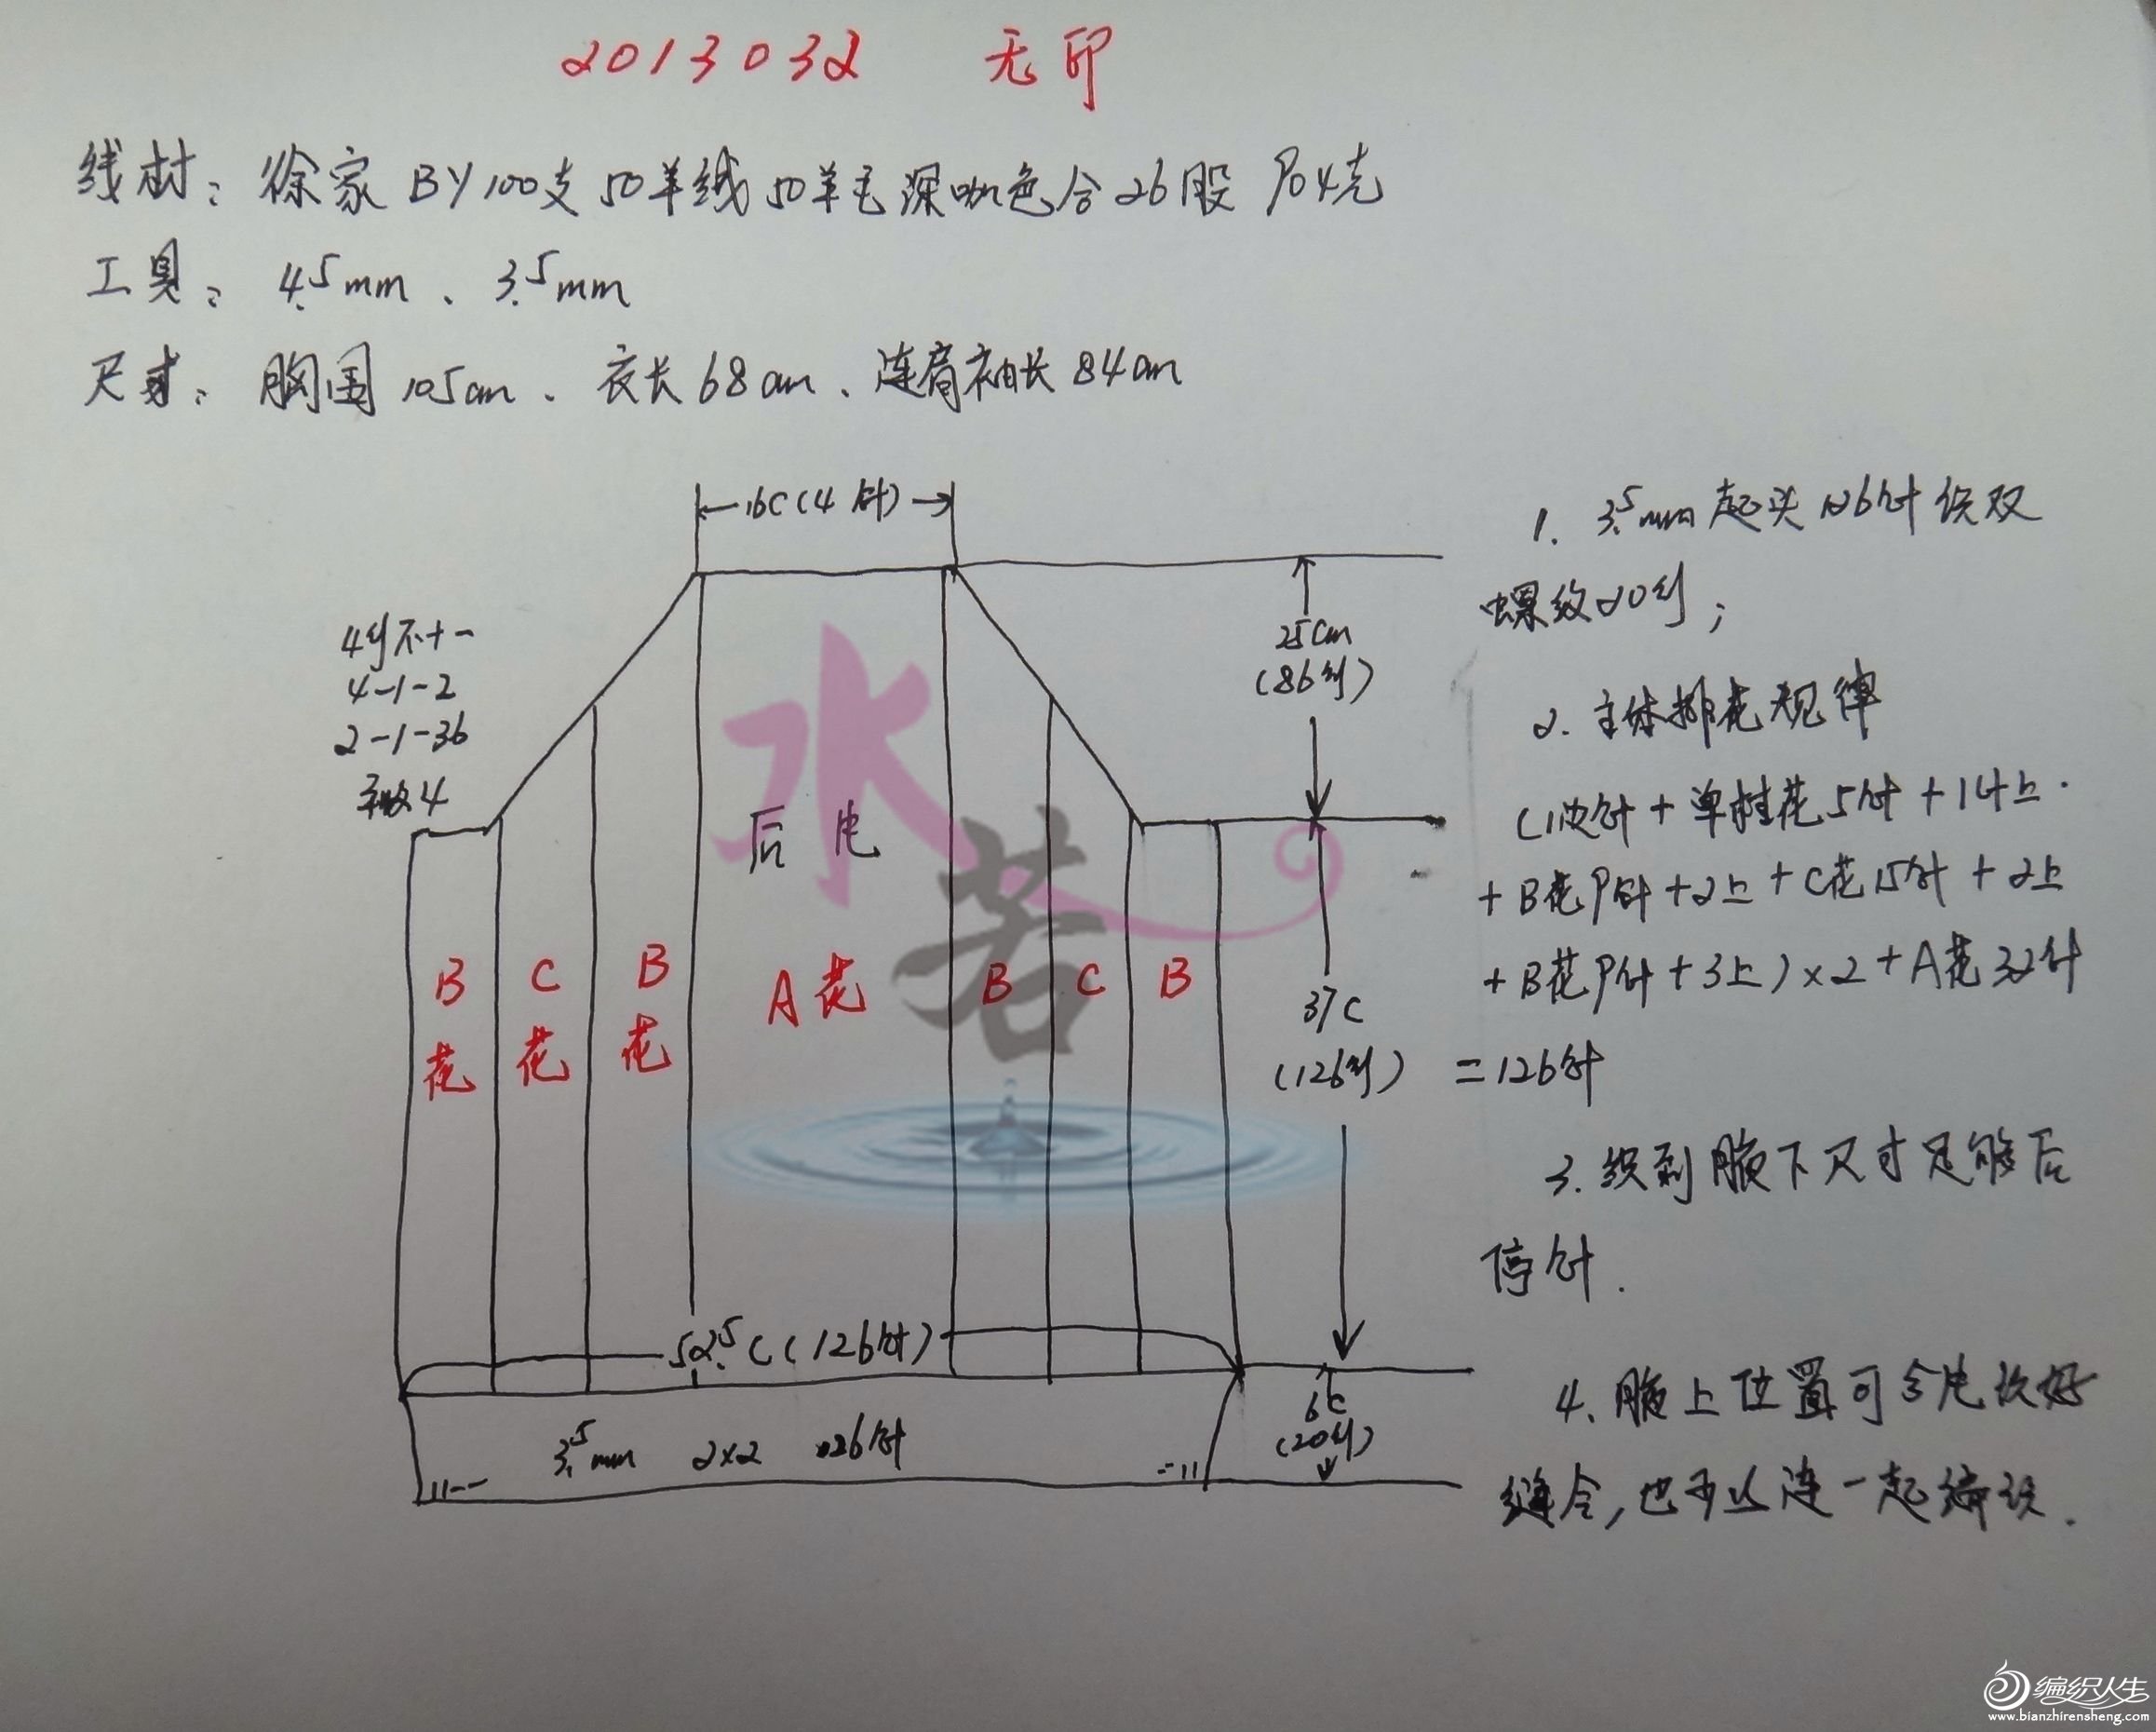 2013032 无印
线材：徐家BY100支50羊绒50羊毛深咖色合26股 904克
工具：4.5mm、3.5mm
尺寸：胸围105cm、衣长68cm、连肩袖长84cm
16C(4针)
4行不+-
4-1-2
2-1-36
平收4
后片
水若
B花
C花
B花
A花
B
C
B
25cm
(86行)
37C
(126行)
52.5C(126针)
3.5mm 2×2 126针
6C
(20行)
1. 3.5mm起头126针织双
螺纹20行；
2. 主体排花规律
(1边针+单桂花5针+1上
+B花9针+2上+C花15针+2上
+B花9针+3上)×2+A花32针
=126针
3. 织到腋下尺寸足够后
停针.
4、腋上位置可分片织好
缝合,也可以连一起编织.
编织人生
www.bianzhirensheng.com